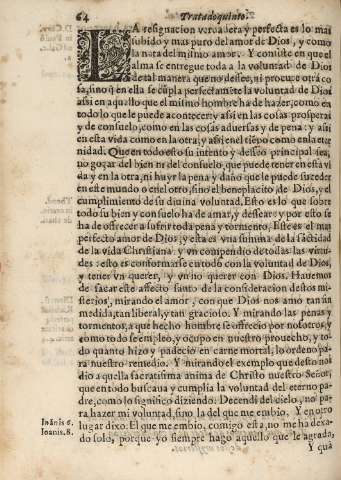 64 Tratado quinto.
LA resignacion verdadera y perfecta es lo mas
subido y mas puro del amor de Dios, y como
la nata del mismo amor. Y consiste en que el
alma se entregue toda a la voluntad de Dios
de tal manera que no dessee, ni procure otra co
sa, sino q̃ en ella se cũpla perfectamẽte la voluntad de Dios
assi en aquello que el mismo hombre ha de hazer, como en
todo lo que le puede acontecer: y assi en las cosas prosperas
y de consuelo, como en las cosas aduersas y de pena: y assi
en esta vida como en la otra, y assi en el tiẽpo como en la eter
nidad. Que en todo esto su intento y desseo principal sea,
no gozar del bien ni del consuelo, que puede tener en esta vi
da y en la otra, ni huyr la pena y daño que le puede suceder
en este mundo o en el otro, sino el beneplacito de Dios, y el
cumplimiento de su diuina voluntad. Esto es lo que sobre
todo su bien y consuelo ha de amar, y dessear: y por esto se
ha de offrecer a sufrir toda pena y tormento. Este es el mas
perfecto amor de Dios, y esta es vna summa de la sãctidad
de la vida Christiana: y vn compendio de todas las virtu-
des: esto es conformarse en todo con la voluntad de Dios,
y tener vn querer, y vn no querer con Dios. Hauemos
de sacar este affecto sancto de la consideracion destos mi-
sterios, mirando el amor, con que Dios nos amo tan sin
medida, tan liberal, y tan gracioso. Y mirando las penas y
tormentos, a que hecho hombre se offrecio por nosotros, y
como todo se empleo, y ocupo en nuestro prouecho, y to-
do quanto hizo y padecio en carne mortal, lo ordeno pa-
ra nuestro remedio. Y mirando el exemplo que desto nos
dio aquella sacratissima anima de Christo nuestro Señor,
que en todo buscaua y cumplia la voluntad del eterno pa-
dre, como lo significo diziendo. Decendi del cielo, no pa-
Ioãnis 6. ra hazer mi voluntad, sino la del que me embio. Y en otro
Ioanis. 8. lugar dixo. El que me embio, comigo esta, no me ha dexa-
do solo, porque yo siempre hago aquello que le agrada,
Y quã